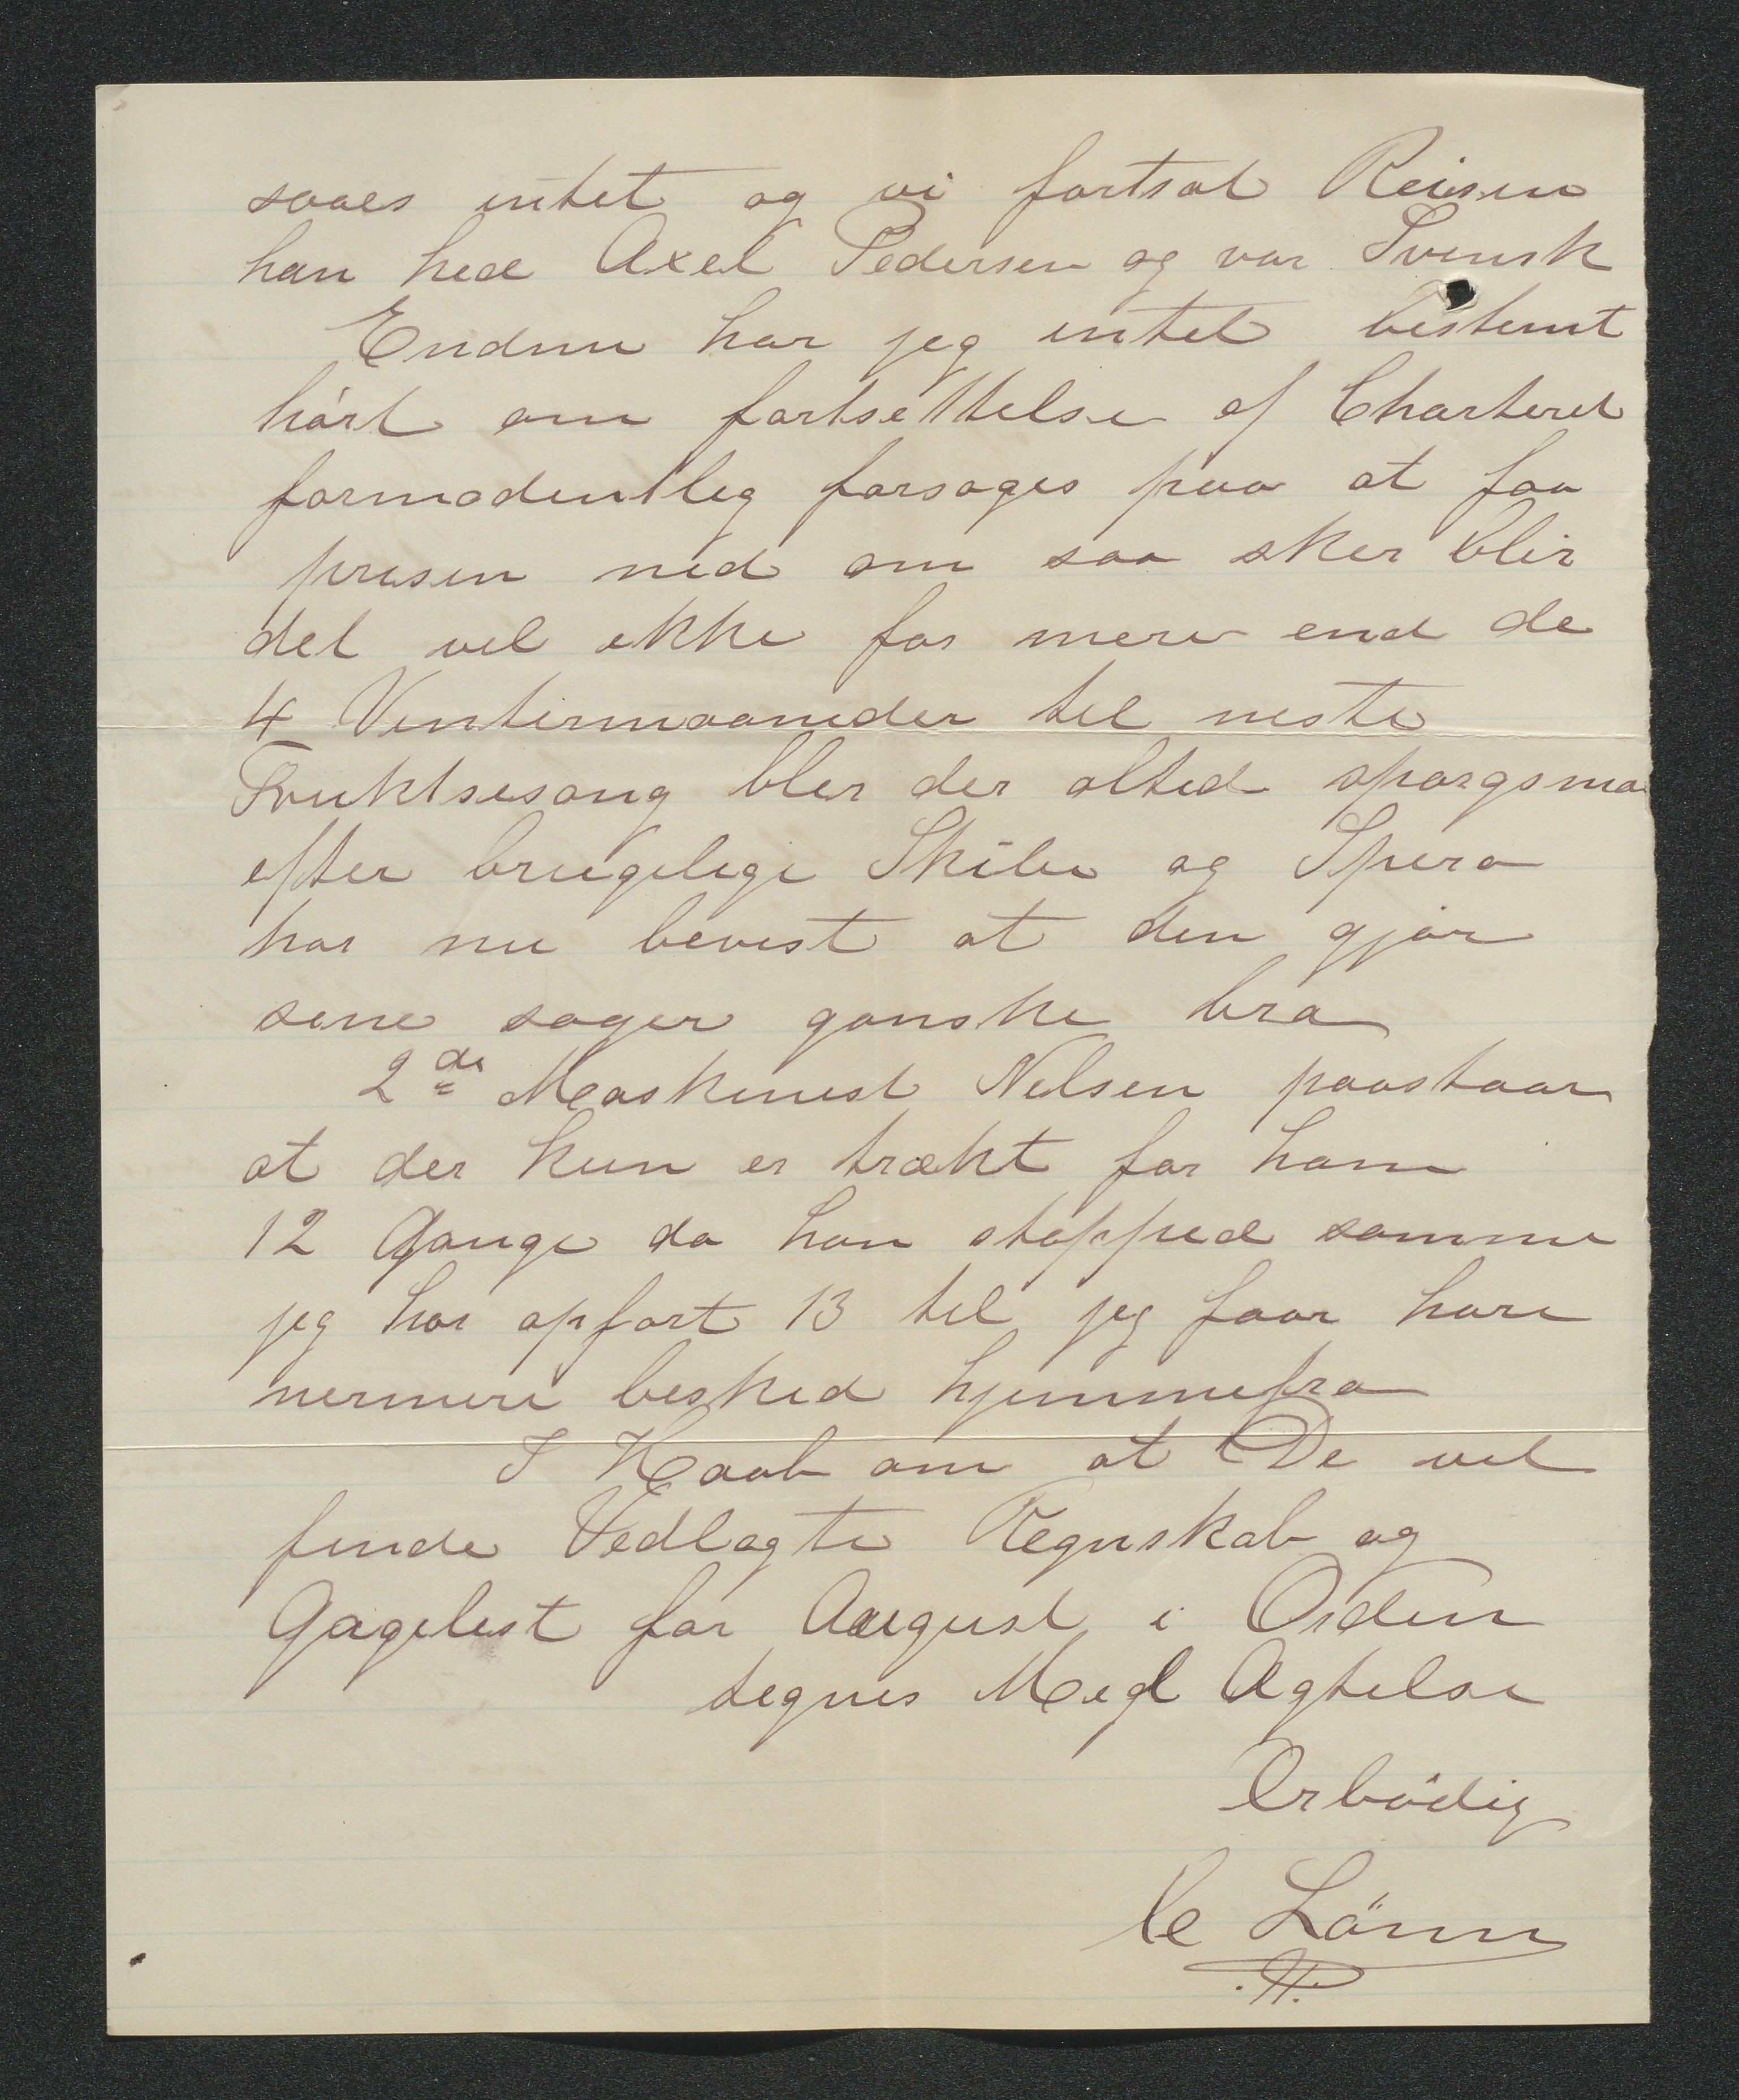 saaes intet og vi fortsat Reisen
han hed Axel Pedersen og var Svensk
Endnu har jeg intet bestemt
hört om fortsettelse af Charteret
formodentlig forsoges paa at faa
prisen ned om saa sker blir
det vel ikke for mere end de
4 Vintermaaneder til neste
Fruktsesong blir der altid sporgsmaa
efter brugelige Skibe og Spero
har nu bevist at den gjör
sine sager ganske bra
2de Maskinist Nilsen paastaar
at der kun er trækt for ham
12 Gange da han stopped samme
jeg har opfort 13 til jeg faar hore
nermere besked hjemmefra
I Haab om at De vil
finde Vedlagte Regnskab og
Gagelist for August i Orden
tegnes Med Agtelse
Erbödig
C Lönn